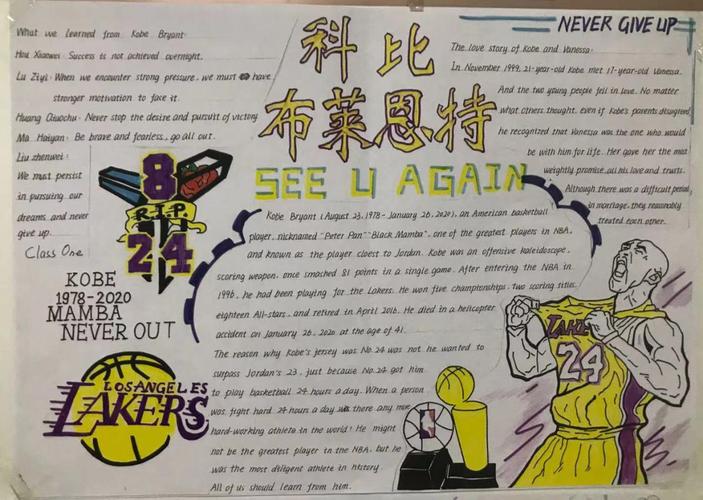 What we learned from Kobe Bryant:
Hou Xiaowei: Success is not achieved overnight.
Lu Ziyi: When we encounter strong pressure, we must have
stronger motivation to face it.
Huang Qiuochu: Never stop the desire and pursuit of victory
Ma Haiyan: Be brave and fearless, go all out.
Liu zhenwei:
We must persist
in pursuing our
dreams and never
give up.
Class One
8
R.I.P.
24
KOBE
1978-2020
MAMBA
NEVER OUT
LOS ANGELES
LAKERS
科比
布莱恩特
SEE U AGAIN
NEVER GIVE UP
The love story of Kobe and Vanessa:
In November 1999, 21-year-old Kobe met 17-year-old Vanessa.
And the two young people fell in love. No matter
what others thought, even if Kobe's parents disagreed
he recognized that Vanessa was the one who would
be with him for life. Her gave her the most
weightly promise, all his love and trusts.
Although there was a difficult period
in marriage, they reasonably
treated each other.
Kobe Bryant (August 23, 1978 - January 26, 2020), an American basketball
player, nicknamed "Peter Pan" "Black Mamba", one of the greatest players in NBA,
and known as the player cloest to Jordan. Kobe was an offensive kaleidoscope,
scoring weapon, once smashed 81 points in a single game. After entering the NBA in
1996, he had been playing for the Lakers. He won five championships, two scoring titles,
eighteen All-stars, and retired in April 2016. He died in a helicopter
accident on January 26, 2020 at the age of 41.
The reason why Kobe's jersey was No.24 was not he wanted to
surpass Jordan's 23, just because No.24 got him
to play basketball 24 hours a day. When a person
was fight hard 24 hours a day was there any more
hard-working athlete in the world! He might
not be the greatest player in the NBA, but he
was the most diligent athlete in history.
All of us should learn from him.
LAKE
24